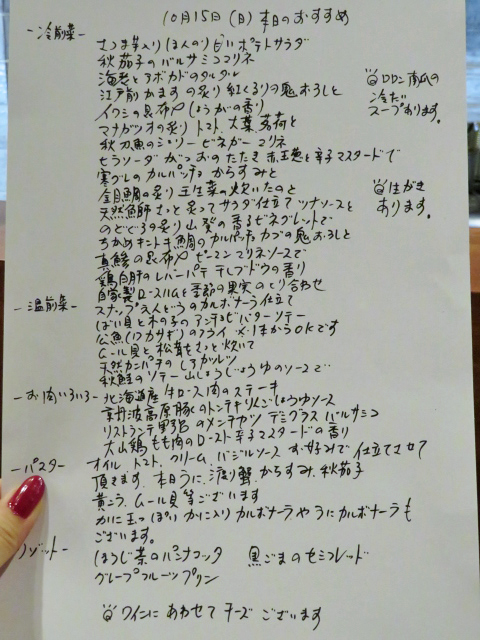 10月15日(日) 本日のおすすめ
-冷前菜-
さつま芋入り ほんのり甘い ポテトサラダ
秋茄子のバルサミコマリネ
海老とアボカドのタルタル
江戸前かますの炙り 紅くるりの鬼おろしと
イワシの昆布〆 しょうがの香り
マナガツオの炙り トマト、大葉、茗荷と
秋刀魚のシェリービネガーマリネ
ヒラソーダがつおのたたき 赤玉葱と辛子マスタードで
寒グレのカルパッチョ からすみと
金目鯛の炙り 壬生菜の炊いたのと
天然鰤 さっと炙ってサラダ仕立て ツナソースと
のどぐろの炙り 山葵の香るビネグレットで
ちかめキントキ鯛のカルパッチョ カブの鬼おろしと
真鯵の昆布〆 ピーマンマリネソースで
鶏白肝のレバーパテ 干しブドウの香り
自家製ロースハムと季節の果実のとり合わせ
-温前菜-
スナップえんどうのカルボナーラ仕立て
ばい貝と木の子のアンチョビバターソテー
公魚(ワカサギ)のフライ ※1本からOKです
ムール貝と松茸をさっと炊いて
天然カンパチのレアカツレツ
秋鮭のソテー 山しょうじょうゆのソースで
-お肉いろいろ-
北海道産 牛ロース肉のステーキ
京丹波高原豚のトンテキ りんごじょうゆソース
リストランテ野呂のメンチカツ デミグラス バルサミコ
大山鶏もも肉のロースト 辛子マスタードの香り
-パスタ-
オイル、トマト、クリーム、バジルソース お好みで仕立てさせて
頂きます。本日うに、渡り蟹、からすみ、秋茄子
黄ニラ、ムール貝等ございます
かに玉っぽい かに入りカルボナーラや うにカルボナーラも
ございます。
ほうじ茶のパンナコッタ 黒ごまのセミフレッド
グレープフルーツプリン
ワインにあわせて チーズ ございます
ロロン南瓜の
冷たい
スープあります。
生がき
あります。